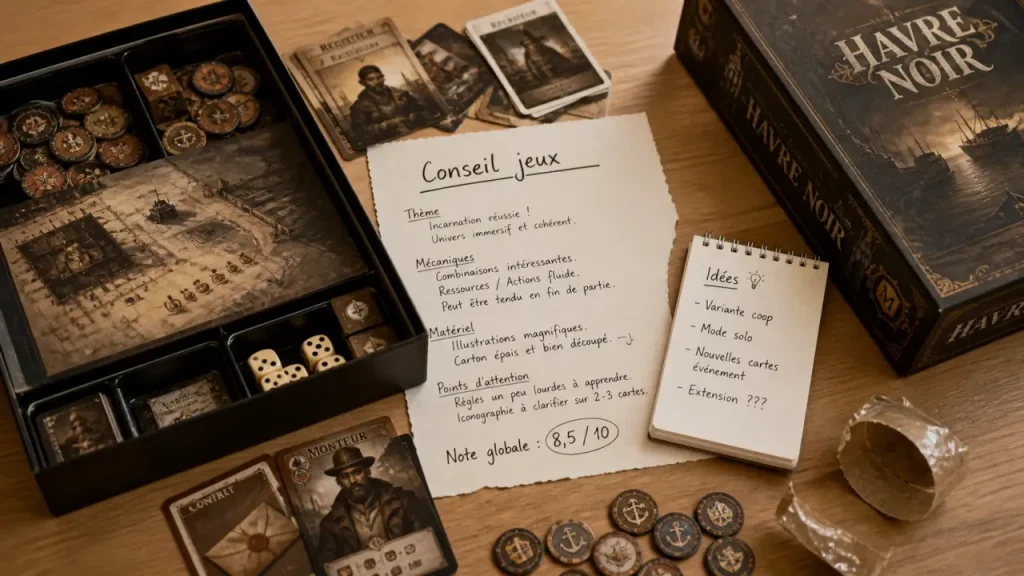 HAVRE
NOIR
HAVRE NOIR
Conseil jeux
Thème
Incarnation réussie !
Univers immersif et cohérent.
Mécaniques
Combinaisons intéressantes.
Ressources / Actions fluide.
Peut être tendu en fin de partie.
Matériel
Illustrations magnifiques.
Carton épais et bien découpé.
Points d'attention
Règles un peu lourdes à apprendre.
Iconographie à clarifier sur 2-3 cartes.
Note globale : 8,5 / 10
Idées
- Variante coop
- Mode solo
- Nouvelles cartes
événement
- Extension ???
M
HAVRE
MONTEUR